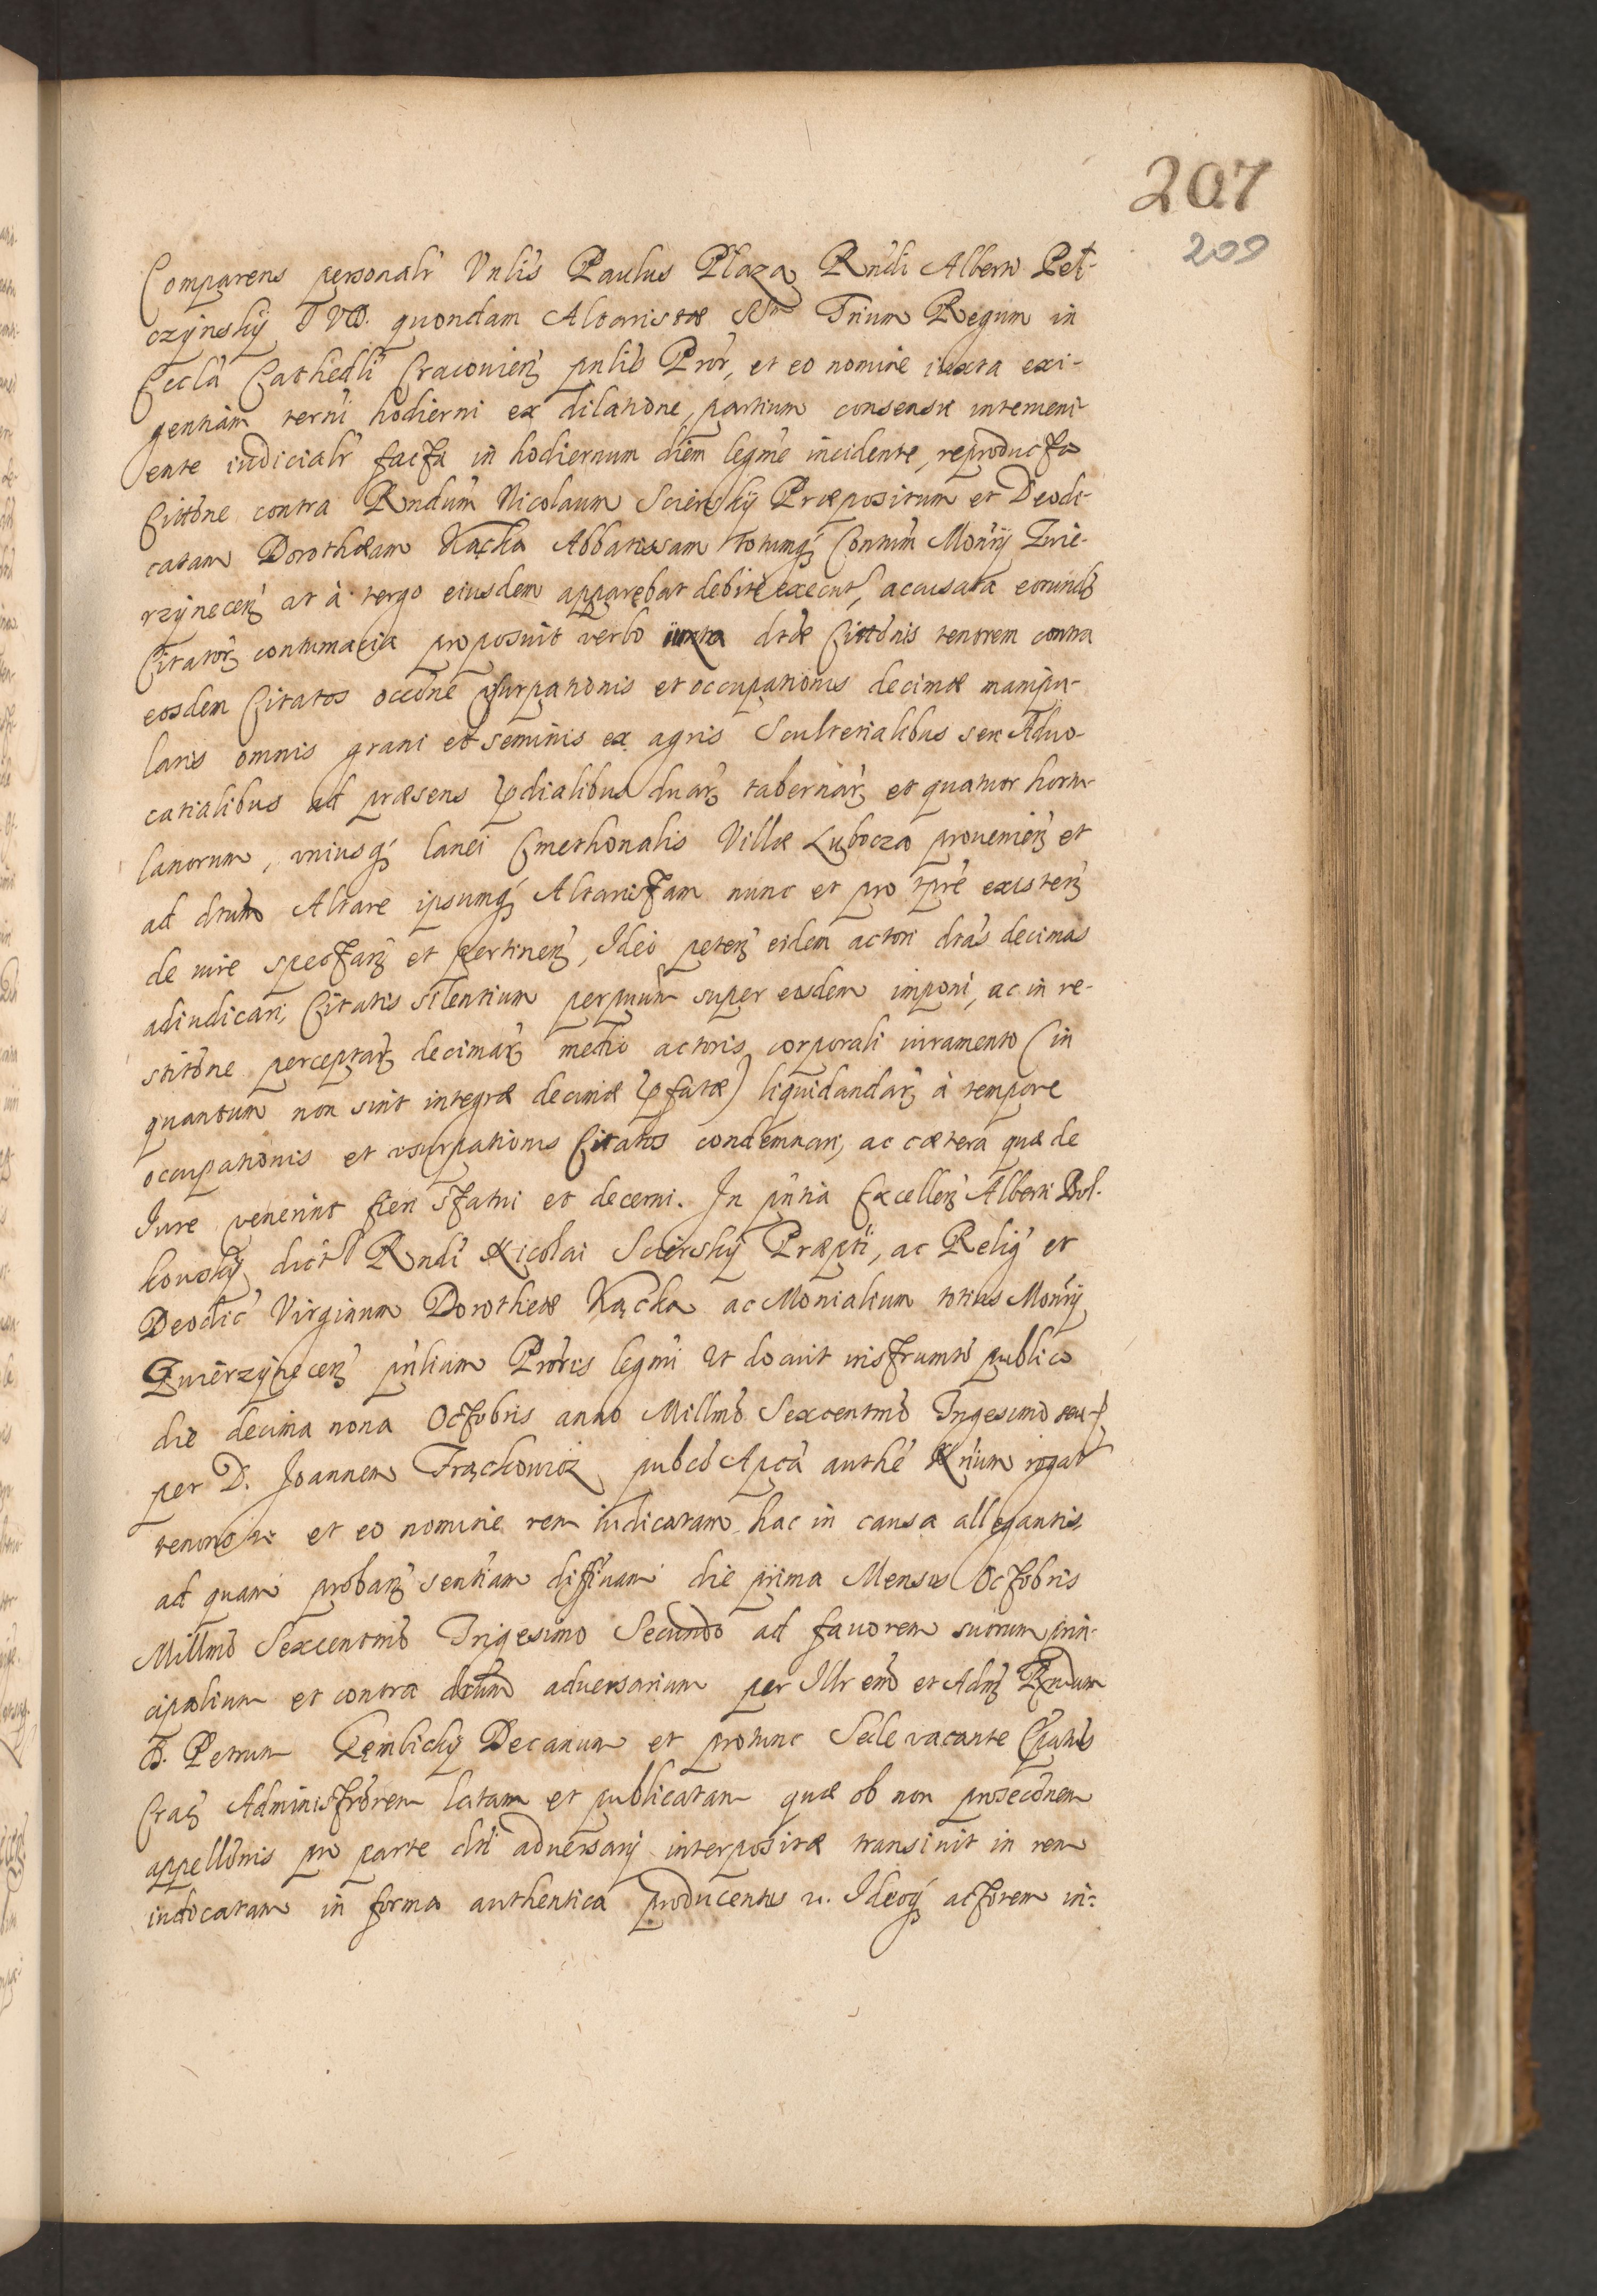 207
209
Comparens personalr Vnlis Paulus Plaza Rndi Alberti Pet-
czynskÿ IVD. quondam Altaristæ SSm Trium Regum in
Eccla Cathedli Cracouien pnlis Pror, et eo nomine iuxta exi-
gentiam termi hodierni ex dilatione, partium consensu interueni-
ente iudicialr facta in hodiernum diem legme incidente, reproducta
Cittone contra Rndum Nicolaum Scierskÿ Præpositum et Deodi-
catam Dorotheam Kącka Abbatissam totumq Conuum Monrij Zwie-
rzÿnecen at à tergo eiusdem apparebat debite execut, accusata eorund
Citator contumacia proposuit verbo iuxta dtæ Cittonis tenorem contra
eosdem Citatos occone vsurpationis et occupationis decimæ manipu-
laris omnis grani et seminis ex agris Scultetialibus seu Aduo-
catialibus ad præsens prædialibus duar tabernar et quatuor hortu-
lanorum, vniusq lanei Cmethonalis Villæ Lubocza prouenien et
ad dtum Altare ipsumq Altaristam nunc et pro tpre existen
de iure spectan et pertinen, Ideo peten eidem actori dtas decimas
adiudicari, Citatis silentium perpuum super eisdem imponi, ac in re-
stitone perceptar decimar medio actoris corporali iuramento (in
quantum non sint integræ decimæ præfatæ) liquidandar à tempore
occupationis et vsurpationis Citatos condemnari, ac cætera quæ de
Iure venerint fieri statui et decerni. In pntia Excellen Alberti Bol-
kouskÿ dict Rndi Nicolai Scierskÿ Præpti, ac Relig et
Deodic Virginum Dorotheæ Kącka ac Monialium totius Monrij
Zwierzÿnecen pnlium Proris legmi ut docuit instrumto publico
die decima nona Octobris anno Millmo Sexcentmo Trigesimo
per D. Joannem Frąckowicz pubco Apca authe Nrium rogat
et eo nomine rem iudicatam hac in causa allegantis,
ad quam proban sentiam diffinam die prima Mensis Octobris
Millmo Sexcentmo Trigesimo Secundo ad fauorem suorum prin-
cipalium et contra dtum aduersarium per Illrem et Adm Rndum
D. Petrum Gembickÿ Decanum et protunc Sede vacante Epatus
Crac Administrorem latam et publicatam quæ ob non prosecónem
appellonis pro parte dti aduersarij interpositæ transiuit in rem
iudicatam in forma authentica producentis n. Ideoq actorem in-